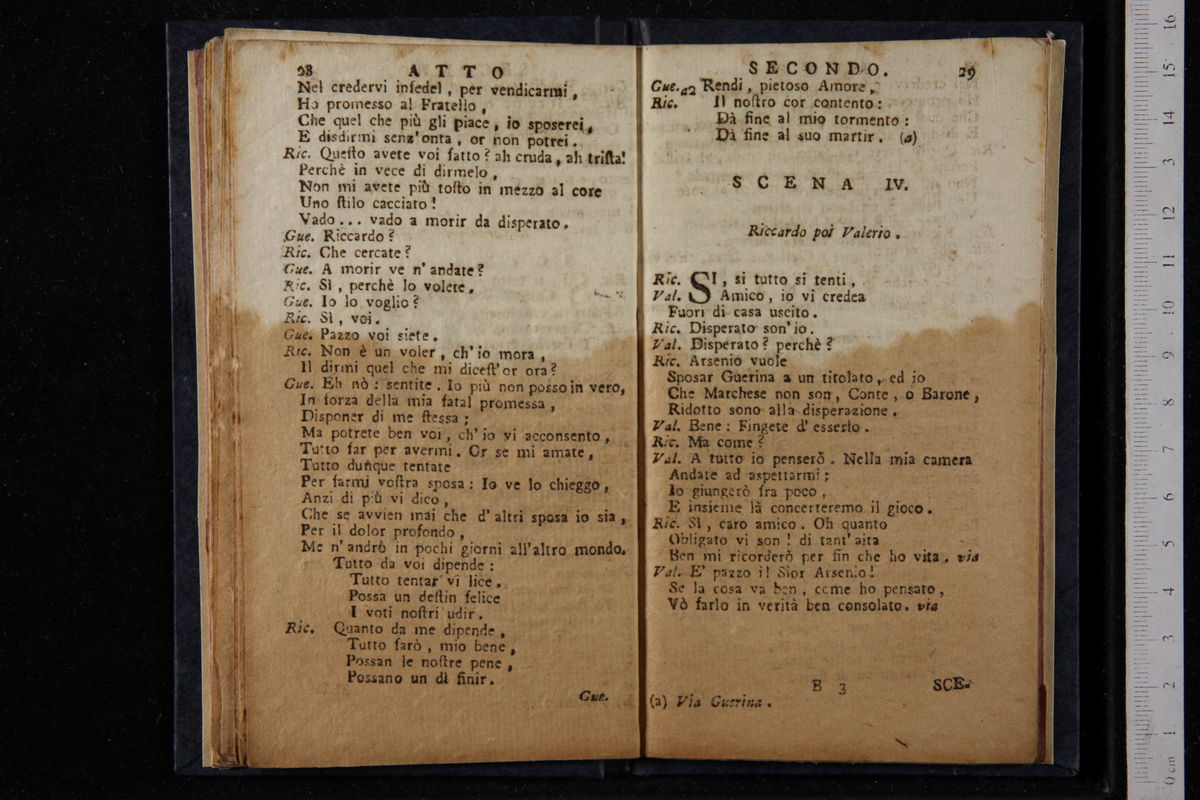 28 ATTO
Nel credervi infedel, per vendicarmi,
Ho promesso al Fratello,
Che quel che più gli piace, io sposerei,
E disdirmi senz'onta, or non potrei.
Ric. Questo avete voi fatto? ah cruda, ah trista!
Perchè in vece di dirmelo,
Non mi avete più tosto in mezzo al core
Uno stilo cacciato!
Vado... vado a morir da disperato.
Gue. Riccardo?
Ric. Che cercate?
Gue. A morir ve n'andate?
Ric. Sì, perchè lo volete.
Gue. Io lo voglio?
Ric. Sì, voi.
Gue. Pazzo voi siete.
Ric. Non è un voler, ch'io mora,
Il dirmi quel che mi dicest'or ora?
Gue. Eh nò: sentite. Io più non posso in vero,
In forza della mia fatal promessa,
Disponer di me stessa;
Ma potrete ben voi, ch'io vi acconsento,
Tutto far per avermi. Or se mi amate,
Tutto dunque tentate
Per farmi vostra sposa: Io ve lo chieggo,
Anzi di più vi dico,
Che se avvien mai che d'altri sposa io sia,
Per il dolor profondo,
Me n'andrò in pochi giorni all'altro mondo.
Tutto da voi dipende:
Tutto tentar vi lice.
Possa un destin felice
I voti nostri udir.
Ric. Quanto da me dipende,
Tutto farò, mio bene,
Possan le nostre pene,
Possano un dì finir.
Gue.
SECONDO. 29
Gue. a2 Rendi, pietoso Amore,
Ric. Il nostro cor contento:
Dà fine al mio tormento:
Dà fine al suo martir. (a)
SCENA IV.
Riccardo poi Valerio.
Ric. SI, si tutto si tenti,
Val. Amico, io vi credea
Fuori di casa uscito.
Ric. Disperato son'io.
Val. Disperato? perchè?
Ric. Arsenio vuole
Sposar Guerina a un titolato, ed io
Che Marchese non son, Conte, o Barone,
Ridotto sono alla disperazione.
Val. Bene: Fingete d'esserlo.
Ric. Ma come?
Val. A tutto io penserò. Nella mia camera
Andate ad aspettarmi;
Io giungerò fra poco,
E insieme là concerteremo il gioco.
Ric. Sì, caro amico. Oh quanto
Obligato vi son! di tant'aita
Ben mi ricorderò per fin che ho vita. via
Val. E' pazzo il Sior Arsenio!
Se la cosa va ben, come ho pensato,
Vò farlo in verità ben consolato. via
B 3 SCE-
(a) Via Guerina.
0 cm 1 2 3 4 5 6 7 8 9 10 11 12 13 14 15 16